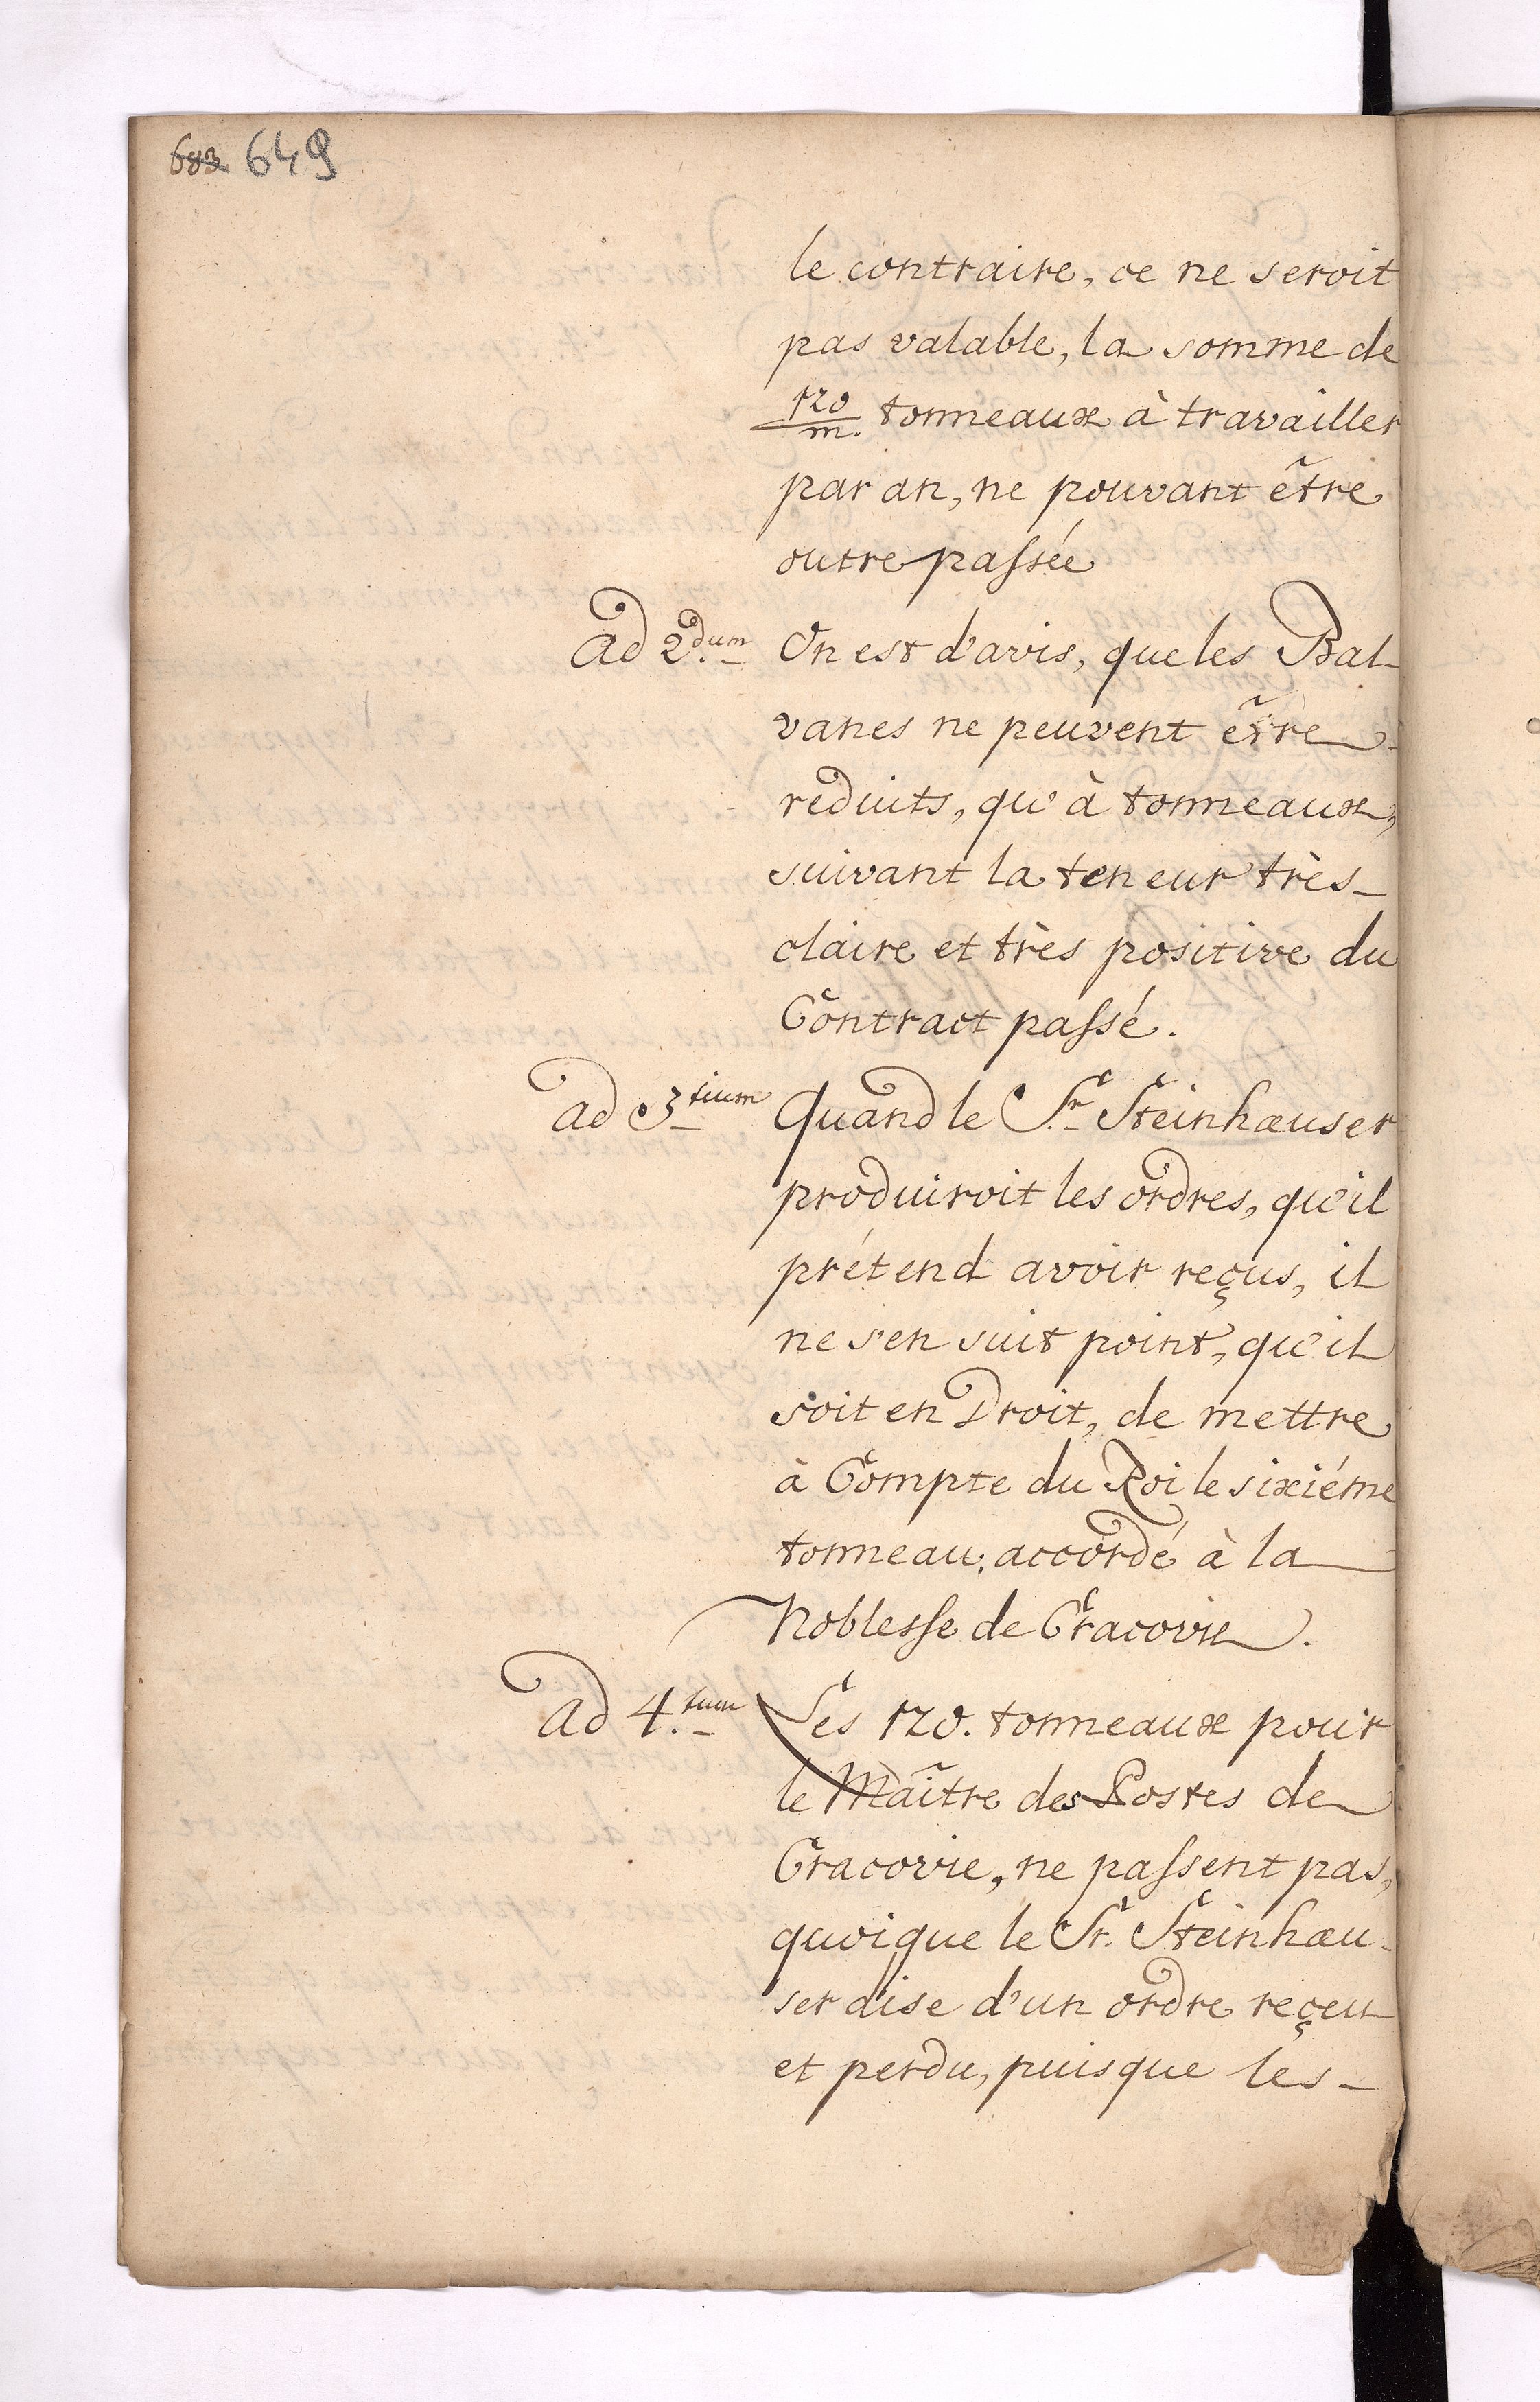 683 649
le contraire, ce ne seroit
pas valable, la somme de
120/m. tonneaux à travailler
par an, ne pouvant être
outre passée
ad 2.dum On est d'avis, que les Bal-
vanes ne peuvent être
réduits, qu'à tonneaux,
suivant la teneur très-
claire et très positive du
Contract passé.
ad 3tium Quand le Sr. Steinhæuser
produiroit les ordres, qu'il
prétend avoir reçus, il
ne s'en suit point, qu'il
soit en Droit, de mettre
à Compte du Roi le sixiéme
tonneau, accordé à la
Noblesse de Cracovie.
ad 4.tum Les 120. tonneaux pour
le Maître des Postes de
Cracovie, ne passent pas,
quoique le Sr. Steinhæu-
ser dise d'un ordre reçeu
et perdu, puisque les-